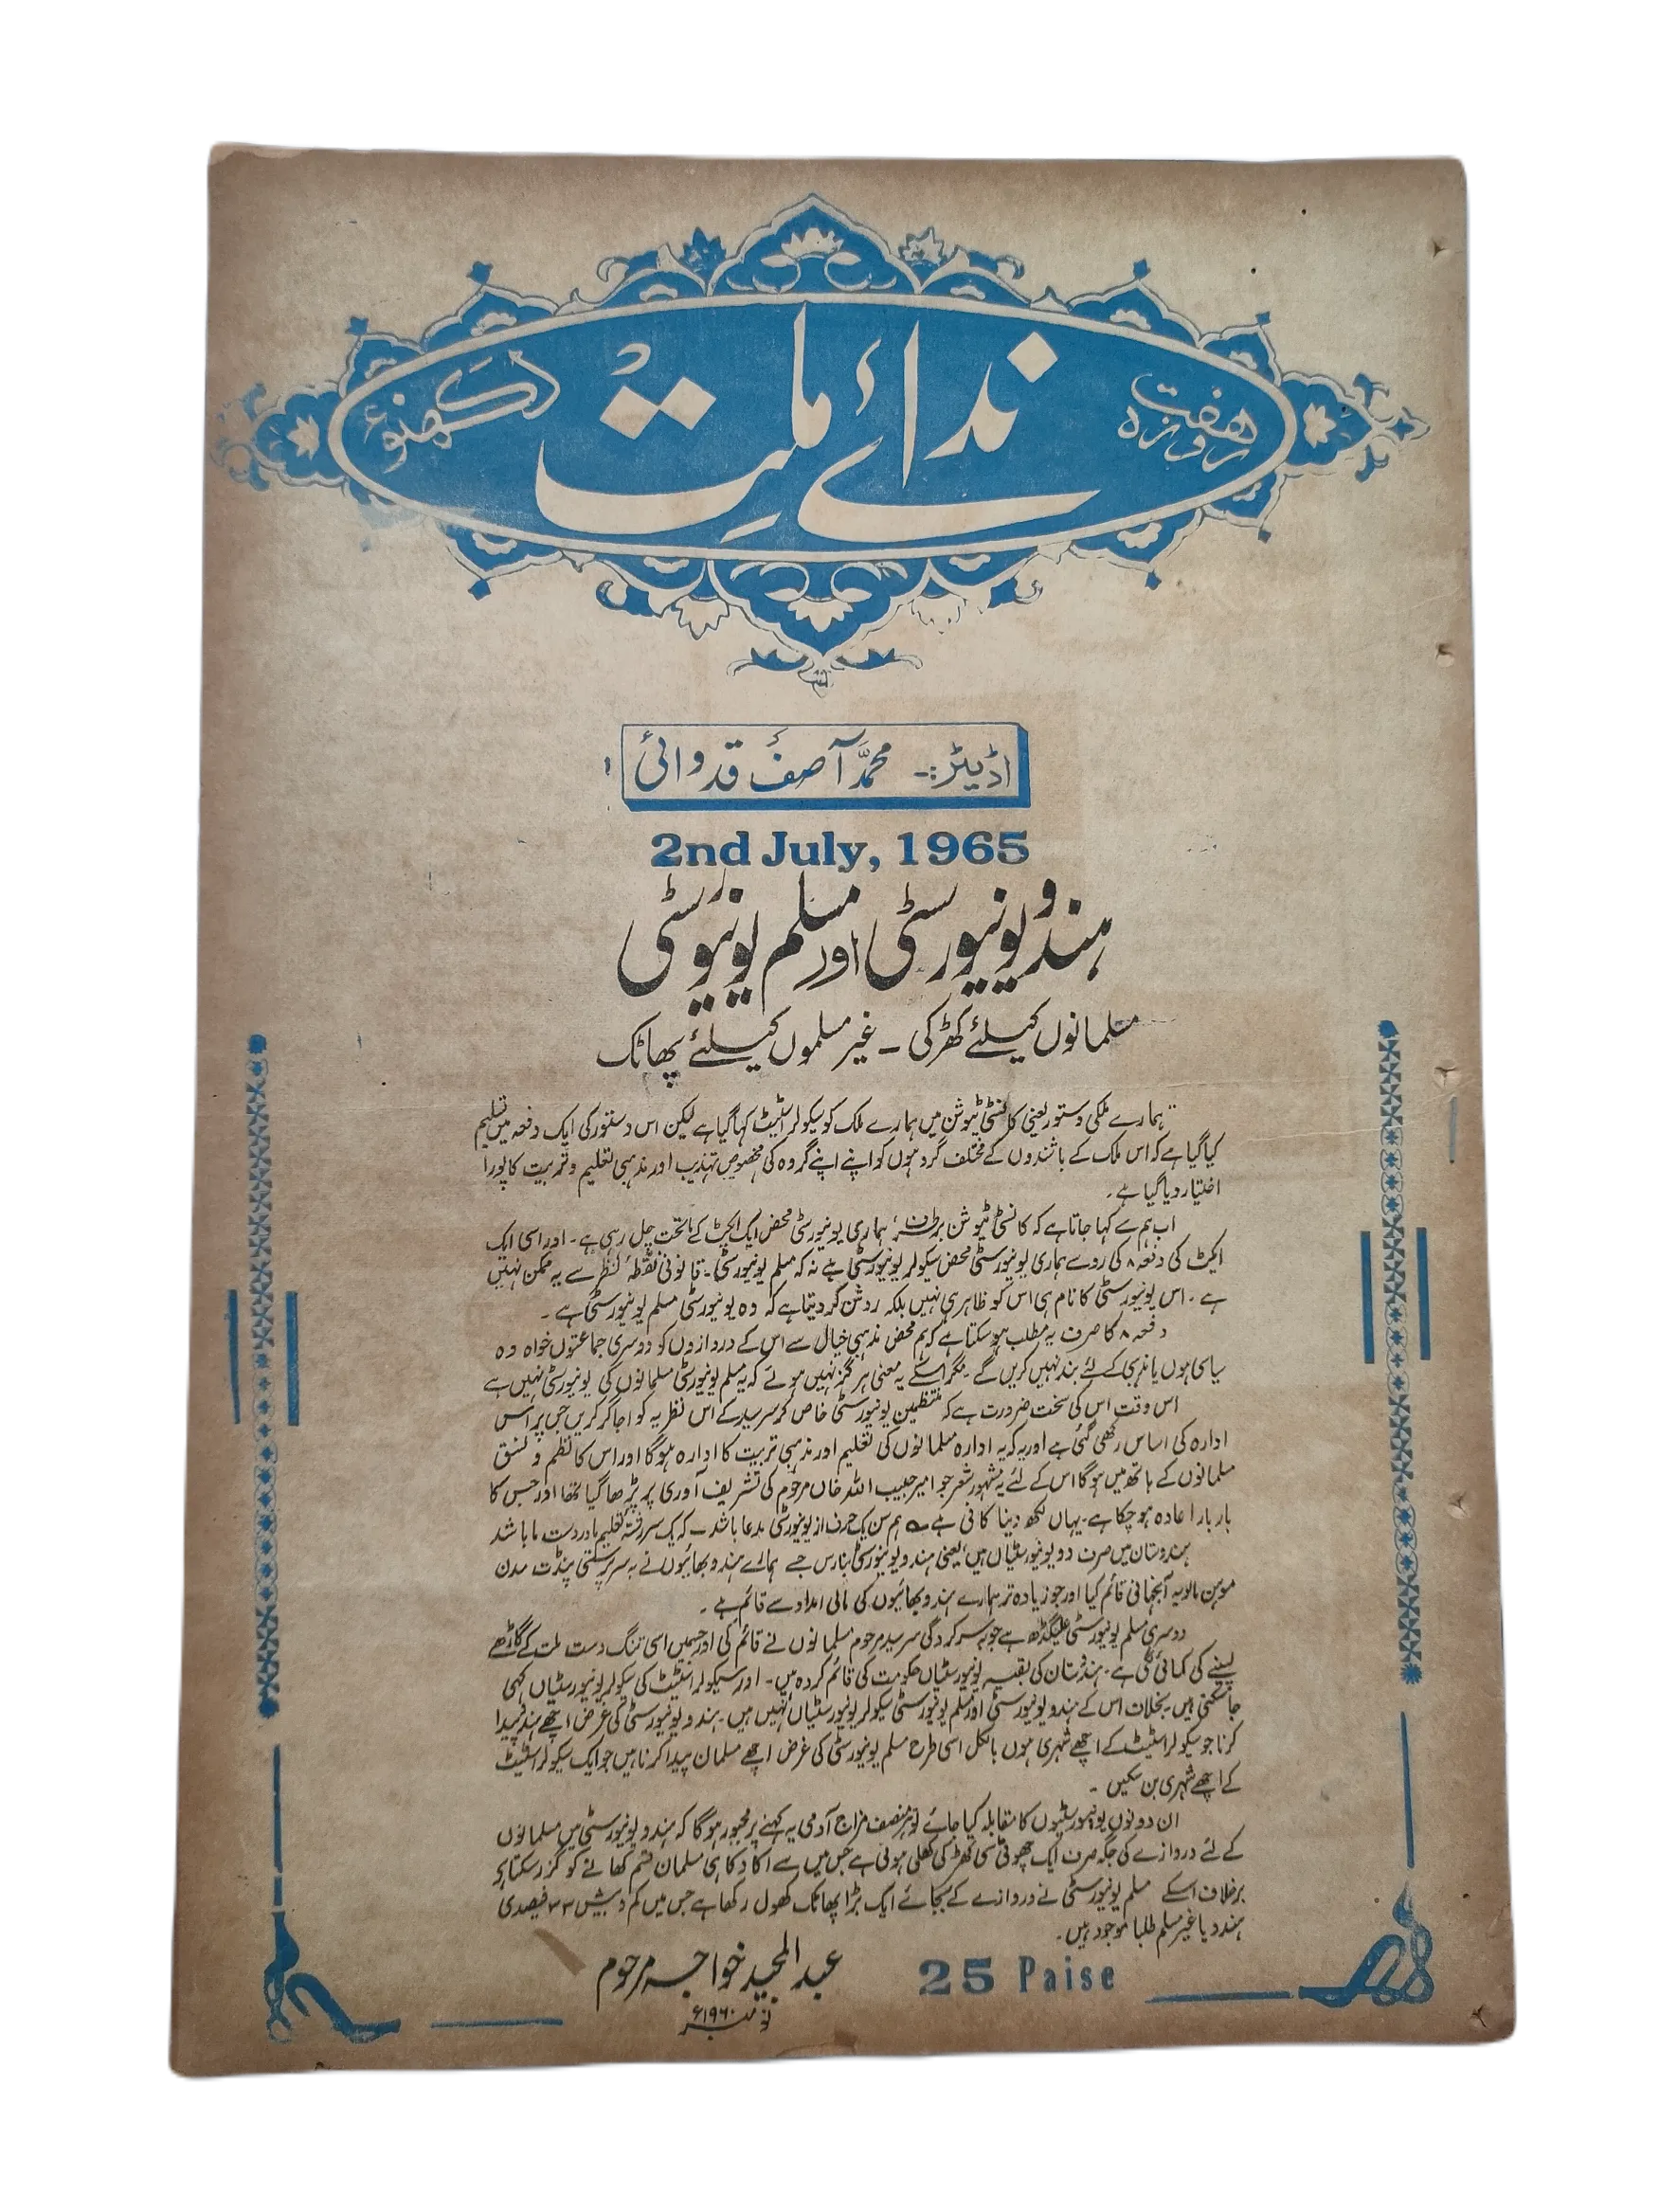 ہفت روزہ
ندائے ملت
لکھنؤ
اڈیٹر:- محمد آصف قدوائی
2nd July, 1965
ہندو یونیورسٹی اور مسلم یونیورسٹی
مسلمانوں کیلئے کھڑکی - غیر مسلموں کیلئے پھاٹک
ہمارے ملکی دستور یعنی کانسٹی ٹیوشن میں ہمارے ملک کو سیکولر اسٹیٹ کہا گیا ہے لیکن اس دستور کی ایک دفعہ میں تسلیم
کیا گیا ہے کہ اس ملک کے باشندوں کے مختلف گروہوں کو اپنے اپنے گروہ کی مخصوص تہذیب اور مذہبی تعلیم و تربیت کا پورا
اختیار دیا گیا ہے۔
اب ہم سے کہا جاتا ہے کہ کانسٹی ٹیوشن برطرف، ہماری یونیورسٹی محض ایک ایکٹ کے ماتحت چل رہی ہے۔ اور اسی ایک
ایکٹ کی دفعہ ۸ کی روسے ہماری یونیورسٹی محض سیکولر یونیورسٹی ہے نہ کہ مسلم یونیورسٹی۔ قانونی نقطۂ نظر سے یہ ممکن نہیں
ہے۔ اس یونیورسٹی کا نام ہی اس کو ظاہری نہیں بلکہ روشن کر دیتا ہے کہ وہ یونیورسٹی مسلم یونیورسٹی ہے۔
دفعہ ۸ کا صرف یہ مطلب ہو سکتا ہے کہ ہم محض مذہبی خیال سے اس کے دروازوں کو دوسری جماعتوں خواہ وہ
سیاسی ہوں یا مذہبی کے لئے بند نہیں کریں گے۔ مگر اسکے یہ معنی ہرگز نہیں ہوتے کہ یہ مسلم یونیورسٹی مسلمانوں کی یونیورسٹی نہیں ہے
اس وقت اس کی سخت ضرورت ہے کہ منتظمین یونیورسٹی خاص کر سرسید کے اس نظریہ کو اجاگر کریں جس پر اس
ادارہ کی اساس رکھی گئی ہے اور یہ کہ یہ ادارہ مسلمانوں کی تعلیم اور مذہبی تربیت کا ادارہ ہوگا اور اس کا نظم و نسق
مسلمانوں کے ہاتھ میں ہوگا اس کے لئے یہ مشہور شعر جو امیر حبیب اللہ خاں مرحوم کی تشریف آوری پر پڑھا گیا تھا اور جس کا
بار بار اعادہ ہو چکا ہے۔ یہاں لکھ دینا کافی ہے ہمیں یک حرف از یونیورسٹی مدعا باشد - کہ یک سررشتہ تعلیم ما در دست ما باشد
ہندوستان میں صرف دو یونیورسٹیاں ہیں، یعنی ہندو یونیورسٹی بنارس جسے ہمارے ہندو بھائیوں نے بہ سرپرستی پنڈت مدن
موہن مالویہ آنجہانی قائم کیا اور جو زیادہ تر ہمارے ہندو بھائیوں کی مالی امداد سے قائم ہے۔
دوسری مسلم یونیورسٹی علیگڑھ ہے جو بہ سرکردگی سرسید مرحوم مسلمانوں نے قائم کی اور جسمیں اسی تنگ دست ملت کے گاڑھے
پسینے کی کمائی لگی ہے۔ ہندوستان کی بقیہ یونیورسٹیاں حکومت کی قائم کردہ ہیں۔ اور سیکولر اسٹیٹ کی سیکولر یونیورسٹیاں کہی
جا سکتی ہیں۔ بخلاف اس کے ہندو یونیورسٹی اور مسلم یونیورسٹی سیکولر یونیورسٹیاں نہیں ہیں۔ ہندو یونیورسٹی کی غرض اچھے ہندو پیدا
کرنا جو سیکولر اسٹیٹ کے اچھے شہری ہوں بالکل اسی طرح مسلم یونیورسٹی کی غرض اچھے مسلمان پیدا کرنا ہیں جو ایک سیکولر اسٹیٹ
کے اچھے شہری بن سکیں۔
ان دونوں یونیورسٹیوں کا مقابلہ کیا جائے تو ہر منصف مزاج آدمی یہ کہنے پر مجبور ہوگا کہ ہندو یونیورسٹی میں مسلمانوں
کے لئے دروازے کی جگہ صرف ایک چھوٹی سی کھڑکی کھلی ہوئی ہے جس میں سے اکا دکا ہی مسلمان قسم کھانے کو گزر سکتا ہے
برخلاف اسکے مسلم یونیورسٹی نے دروازے کے بجائے ایک بڑا پھاٹک کھول رکھا ہے جس میں کم و بیش ۳۳ فیصدی
ہندو یا غیر مسلم طلبا موجود ہیں۔
عبدالمجید خواجہ مرحوم
نومبر ۱۹۶۰ء
25 Paise